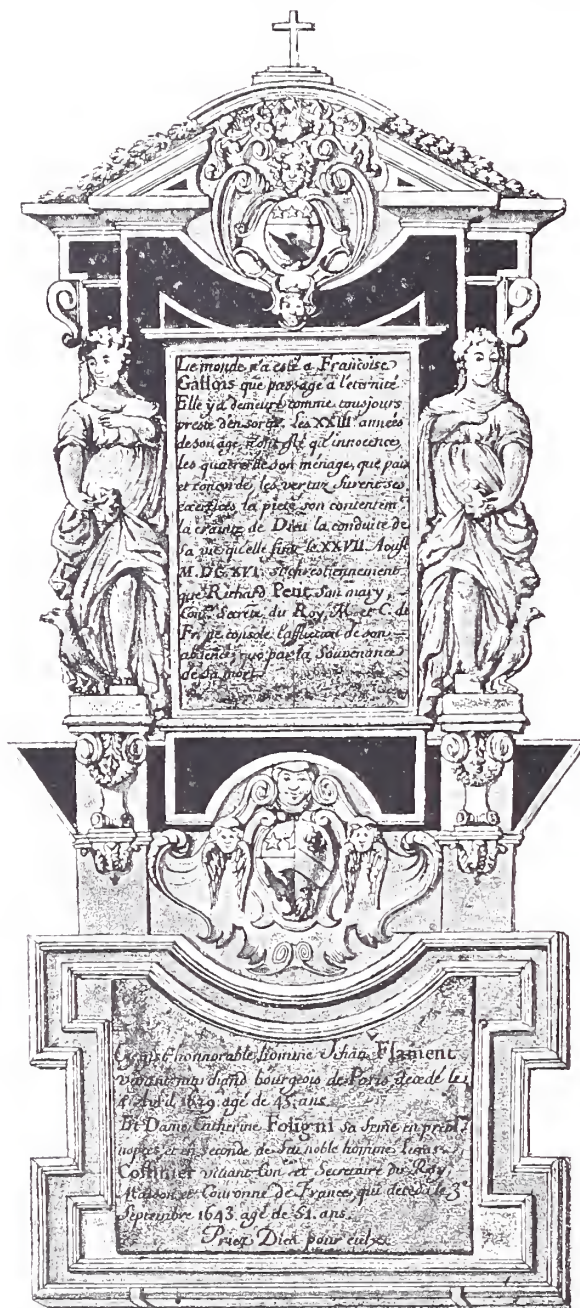 Le monde n'a esté a Francoise
Gallois que passage a l'eternité
Elle y a demeuré comme tousjours
preste d'en sortir. Les XXIII années
de son age n'ont esté qu'innocence,
les quatre de son ménage, que paix
et concorde, les vertuz furent ses
exercices la pieté son contentem.t
la crainte de Dieu la conduite de
sa vie qu'elle finit le XXVII. Aoust
M.DC.XVI. si chrestiennement
que Richard Petit son mary,
Con.er Secret.re du Roy, M. et C. de
Fr. ne console l'affliction de son
absence, que par la Souvenance
de sa mort.
Cy gist honnorable homme Jehan Flament
vivant marchand bourgeois de Paris, decedé le
Avril 1629 agé de 45. ans
Et Dame Catherine Foligni sa feme en prem.es
nopces, et en seconde de feu noble homme
vivant Con.er et Secretaire du Roy
Maison et Couronne de France, qui deceda le 3.e
Septembre 1643 agé de 51. ans.
Priez Dieu pour eulx.